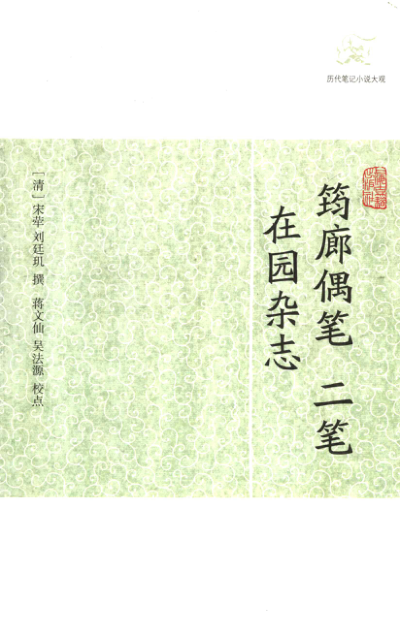 历代笔记小说大观
筠廊偶笔 二笔
在园杂志
［清］宋荦 刘廷玑 撰 蒋文仙 吴法源 校点